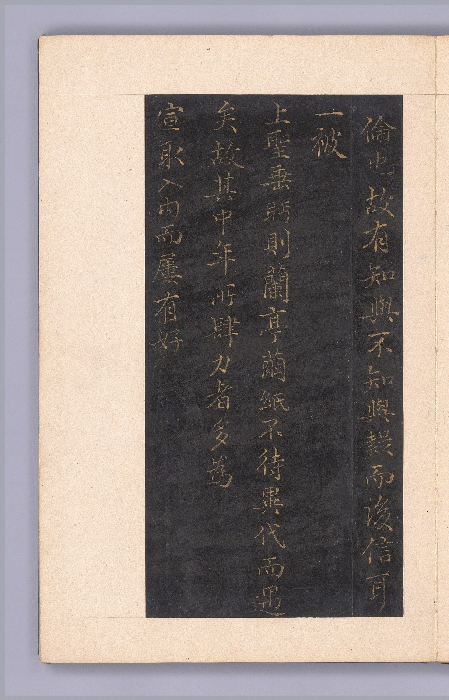 倫也故有知與不知與疑而後信耳
一被
上聖垂眄則蘭亭繭紙不待異代而遇
矣故其中年所肆力者多為
宣取入內而屢有好